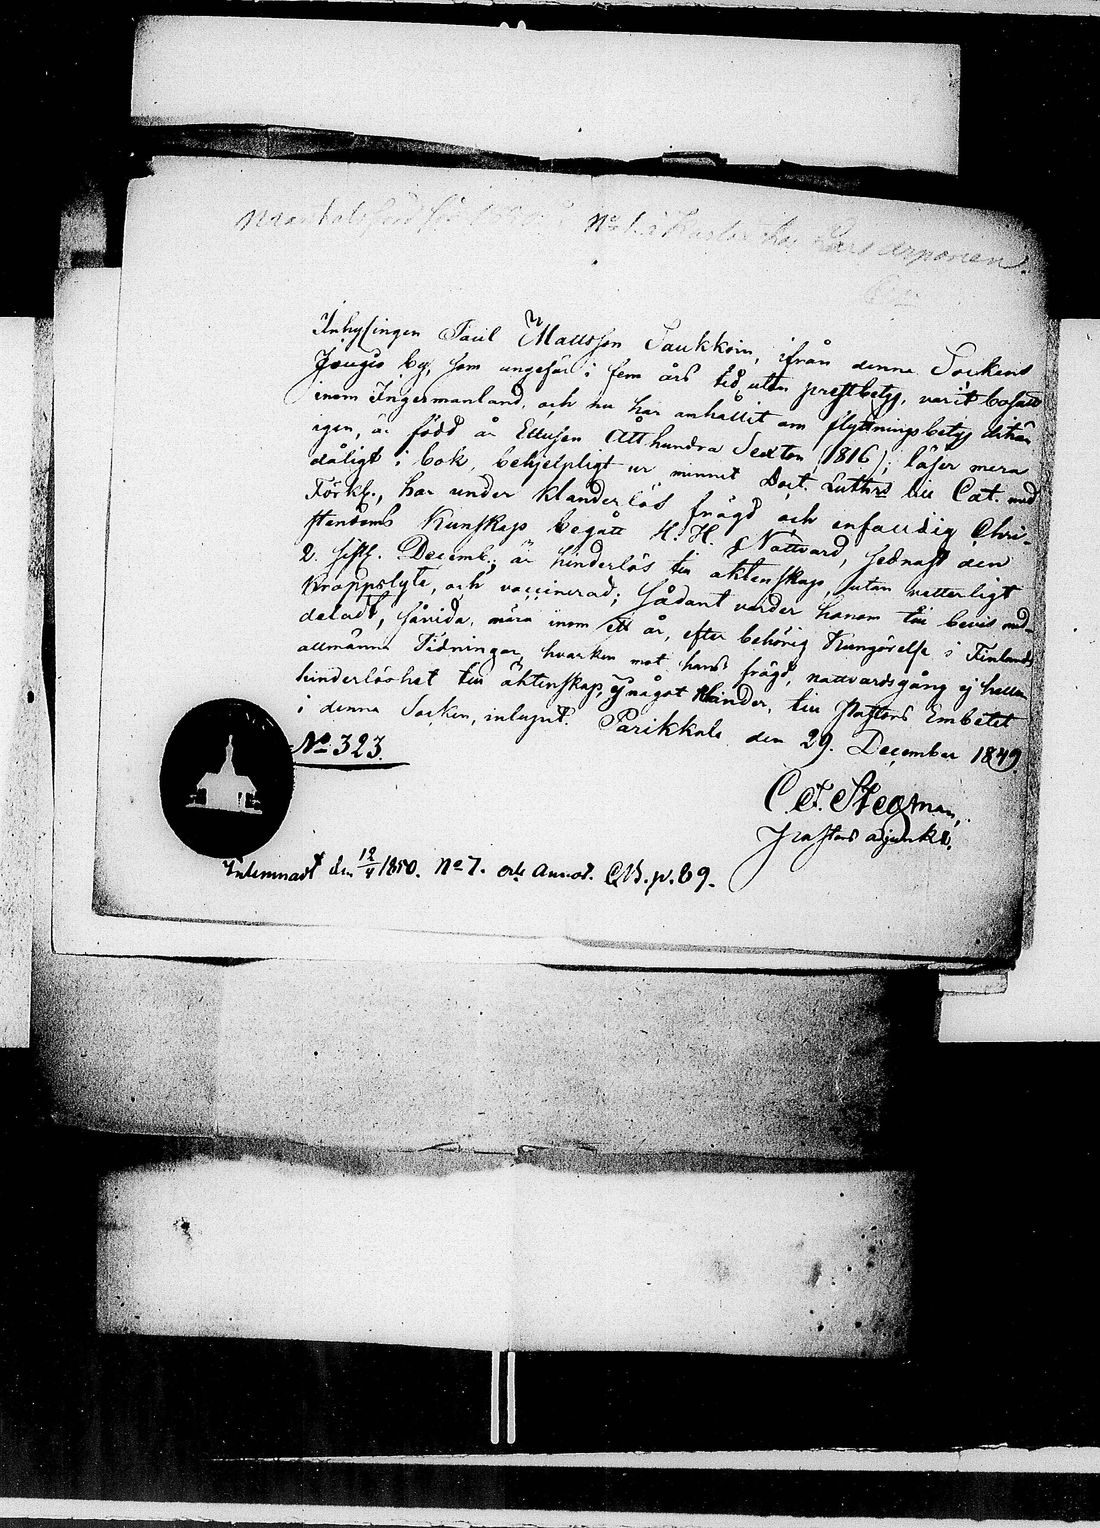 No 1 i
Inhysingen Paul Mattsson Paukkoin, ifrån denna Sockens
by, som ungefär i fem års tid, utan prestbetyg, varit bosatt
inom Ingermanland, och nu har anhållit om flyttningsbetyg ditån
igen, är född år Ettusen Åtthundra Sexton (1816); läser mera
dåligt i bok, behjelpligt ur minnet Doct. Luthrs lill Cat. med
Förkl., har under klanderlös frägd och enfaldig Chri-
stendoms Kunskap begått H. H. Nattvard, sednast den
2. sistl. Decemb.; är hinderlös till äktenskap, utan vetterligt
kroppslyte, och vaccinerad; Sådant varder honom till bevis med-
deladt, såvida, mera inom ett år, efter behörig Kungörelse i Finlands
allmänna Tidningar, hvarken mot hans frägd, nattvardsgång ej heller
hinderlöshet till äktenskap, något Klander, till Pastors Embetet
i denna Socken, inlupit. Parikkala den 29. December 1849.
No 323.
C. F. Stegman,
Pastors adjunkt.
Inlemnadt den 12/4 1850. No 7. och Annot. C.B. p. 89.